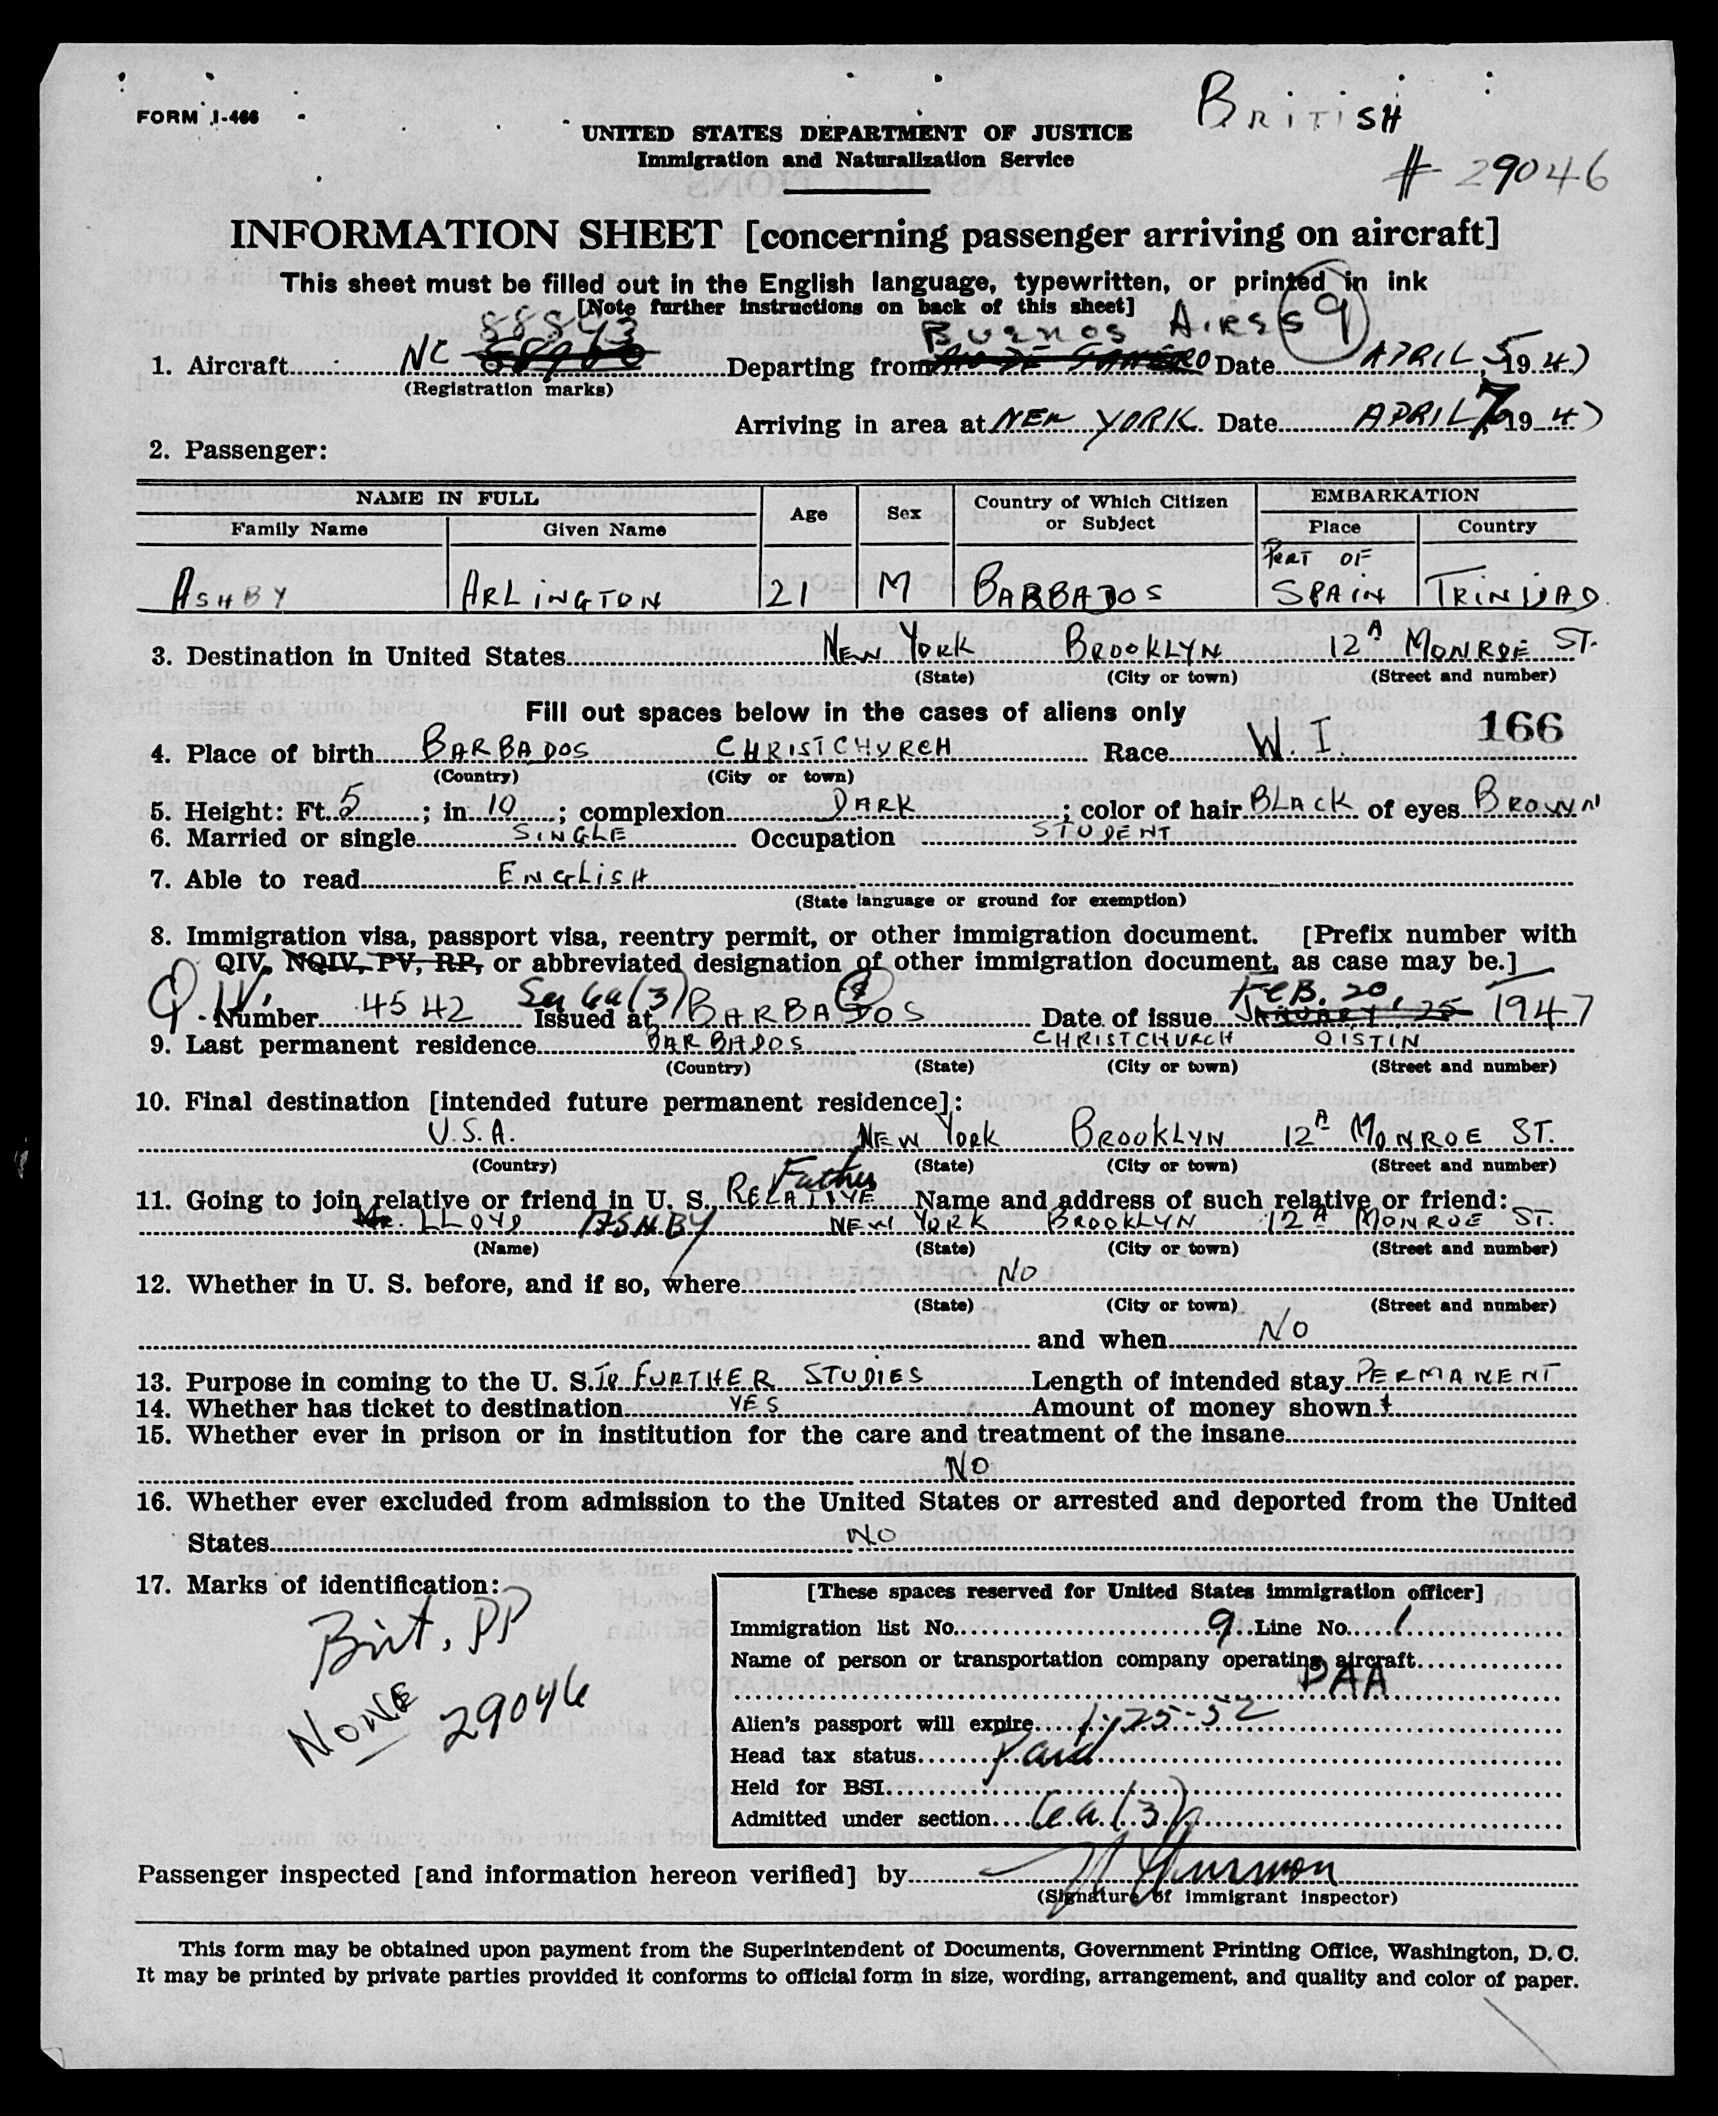 FORM I-466
BRITISH
# 29046
UNITED STATES DEPARTMENT OF JUSTICE
Immigration and Naturalization Service
INFORMATION SHEET [concerning passenger arriving on aircraft]
This sheet must be filled out in the English language, typewritten, or printed in ink
[Note further instructions on back of this sheet]
9
88843 BUENOS AIRES
1. Aircraft NC Departing from Date APRIL 5, 1947
(Registration marks)
Arriving in area at NEW YORK Date APRIL 7, 1947
2. Passenger:
NAME IN FULL Age Sex Country of Which Citizen or Subject EMBARKATION
Family Name Given Name Place Country
ASHBY ARLINGTON 21 M BARBADOS PORT OF SPAIN TRINIDAD
3. Destination in United States NEW YORK BROOKLYN 12A MONROE ST.
(State) (City or town) (Street and number)
Fill out spaces below in the cases of aliens only
166
4. Place of birth BARBADOS CHRISTCHURCH Race W. I.
(Country) (City or town)
5. Height: Ft. 5; in. 10; complexion DARK; color of hair BLACK of eyes BROWN
6. Married or single SINGLE Occupation STUDENT
7. Able to read ENGLISH
(State language or ground for exemption)
8. Immigration visa, passport visa, reentry permit, or other immigration document. [Prefix number with
QIV, NQIV, PV, RP, or abbreviated designation of other immigration document, as case may be.]
QIV. Sec 6a(3) FEB. 20,
Number 4542 Issued at BARBADOS Date of issue JANUARY 25 1947
9. Last permanent residence BARBADOS CHRISTCHURCH OISTIN
(Country) (State) (City or town) (Street and number)
10. Final destination [intended future permanent residece]:
U.S.A. NEW YORK BROOKLYN 12A MONROE ST.
(Country) (State) (City or town) (Street and number)
Father
11. Going to join relative or friend in U. S. RELATIVE Name and address of such relative or friend:
MR. LLOYD ASHBY NEW YORK BROOKLYN 12A MONROE ST.
(Name) (State) (City or town) (Street and number)
12. Whether in U. S. before, and if so, where NO
(State) (City or town) (Street and number)
and when NO
13. Purpose in coming to the U. S. TO FURTHER STUDIES Length of intended stay PERMANENT
14. Whether has ticket to destination YES Amount of money shown $
15. Whether ever in prison or in institution for the care and treatment of the insane
NO
16. Whether ever excluded from admission to the United States or arrested and deported from the United
States NO
17. Marks of identification:
Brit. PP
29046
NONE
[These spaces reserved for United States immigration officer]
Immigration list No. 9 Line No. 1
Name of person or transportation company operating aircraft
PAA
Alien's passport will expire 1-25-52
Head tax status Paid
Held for BSI
Admitted under section 6a(3)
Passenger inspected [and information hereon verified] by
(Signature of immigrant inspector)
This form may be obtained upon payment from the Superintendent of Documents, Government Printing Office, Washington, D. C.
It may be printed by private parties provided it conforms to official form in size, wording, arrangement, and quality and color of paper.